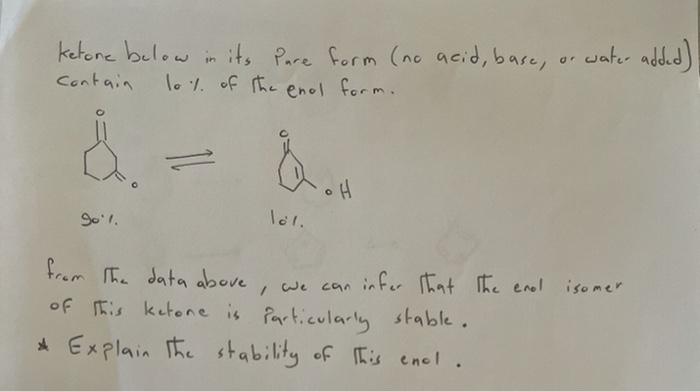 ketone below in its Pure form (no acid, base, or water added)
Contain 10% of the enol form.
O O
O OH
90%. 10%.
from The data above, we can infer That The enol isomer
of This ketone is Particularly stable.
* Explain The stability of This enol.